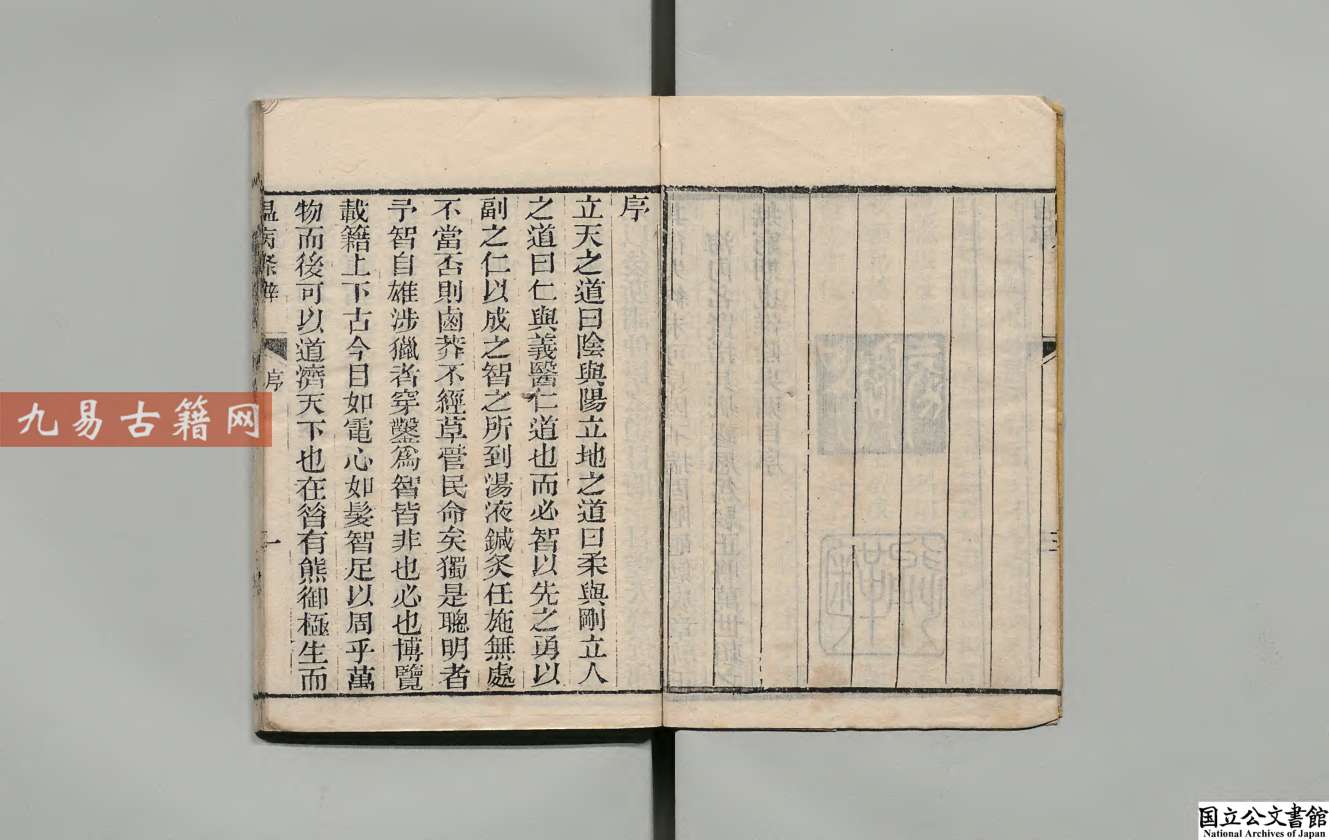 序
立天之道曰陰與陽立地之道曰柔與剛立人
之道曰仁與義醫仁道也而必智以先之勇以
副之仁以成之智之所到湯液鍼灸任施無處
不當否則鹵莽不經草菅民命矣獨是聰明者
予智自雄涉獵者穿鑿爲智皆非也必也博覽
載籍上下古今目如電心如髮智足以周乎萬
物而後可以道濟天下也在昝有熊御極生而
溫病條辨
序
一
九易古籍网
国立公文書館
National Archives of Japan